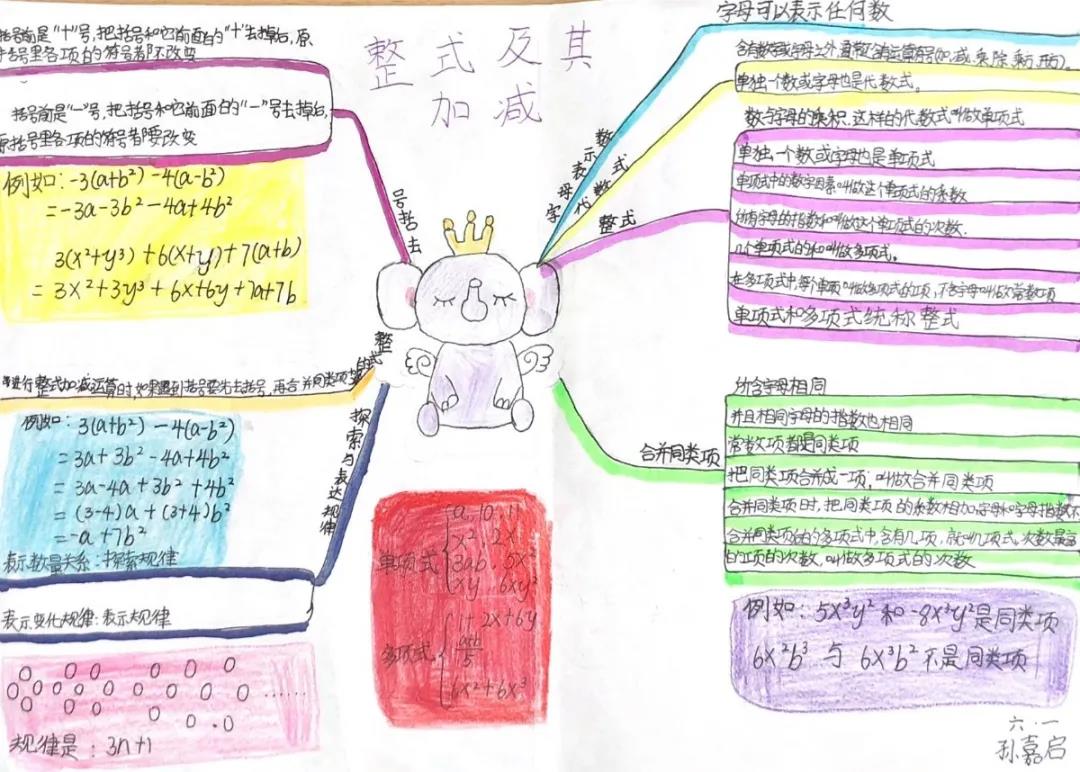 整式及其
加减
括号前是"十"号,把括号和它前面的"+"去掉后,原
括号里各项的符号都不改变
括号前是"一"号,把括号和它前面的"一"号去掉后,
原括号里各项的符号都要改变
去括号
例如:-3(a+b²)-4(a-b²)
=-3a-3b²-4a+4b²
3(x²+y³)+6(x+y)+7(a+b)
=3x²+3y³+6x+6y+7a+7b
进行整式加减运算时,如果遇到括号要先去括号,再合并同类项
整式的
例如:3(a+b²)-4(a-b²)
=3a+3b²-4a+4b²
=3a-4a+3b²+4b²
=(3-4)a+(3+4)b²
=-a+7b²
探索与表达规律
表示数量关系:探索规律
表示变化规律:表示规律
规律是:3n+1
单项式
a,10,11
x²,2x
3ab,5x²
xy,6xy²
多项式
1+2x+6y
a+b/5
6x²+6x³
字母表示数
字母可以表示任何数
代数式
单独一个数或字母也是代数式。
整式
数字母的乘积,这样的代数式叫做单项式
单独一个数或字母也是单项式
单项式中的数字因素叫做这个单项式的系数
所有字母的指数和叫做这个单项式的次数.
几个单项式的和叫做多项式。
在多项式中,每个单项叫做多项式的项,不含字母叫做常数项
单项式和多项式统称整式
合并同类项
所含字母相同
并且相同字母的指数也相同
常数项都是同类项
把同类项合并成一项,叫做合并同类项
合并同类项时,把同类项的系数相加,字母和字母指数不
的项的次数,叫做多项式的次数
例如:5x³y²和-8x³y²是同类项
6x²b³与6x³b²不是同类项
六.一
孙嘉启